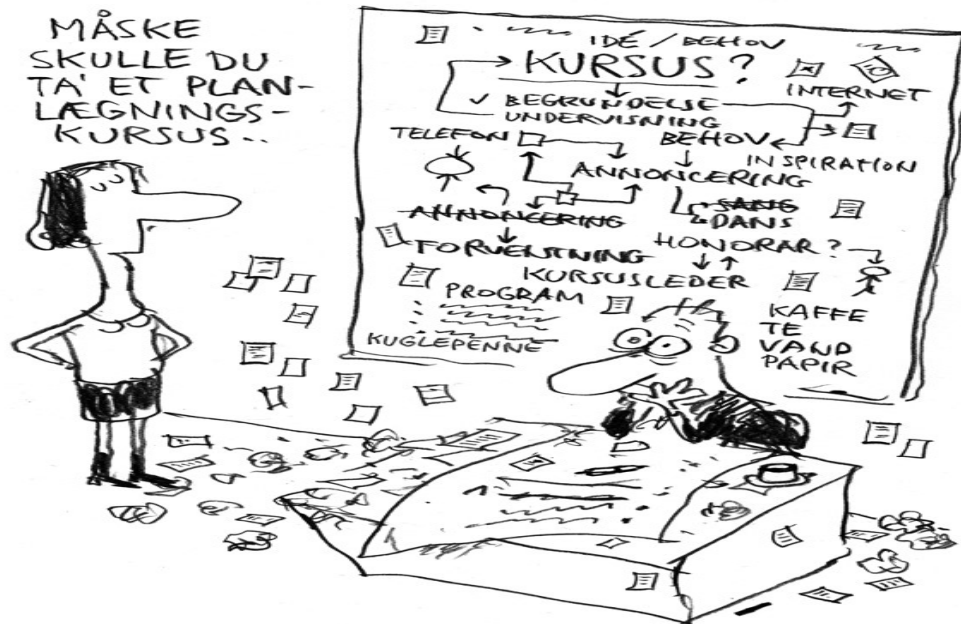 MÅSKE
SKULLE DU
TA' ET PLAN-
LÆGNINGS-
KURSUS..
IDÉ / BEHOV
KURSUS?
INTERNET
✓ BEGRUNDELSE
UNDERVISNING
TELEFON
BEHOV
INSPIRATION
ANNONCERING
SANG
ANNONCERING
DANS
FORVENTNING
HONORAR?
KURSUSLEDER
PROGRAM
KAFFE
TE
VAND
PAPIR
KUGLEPENNE